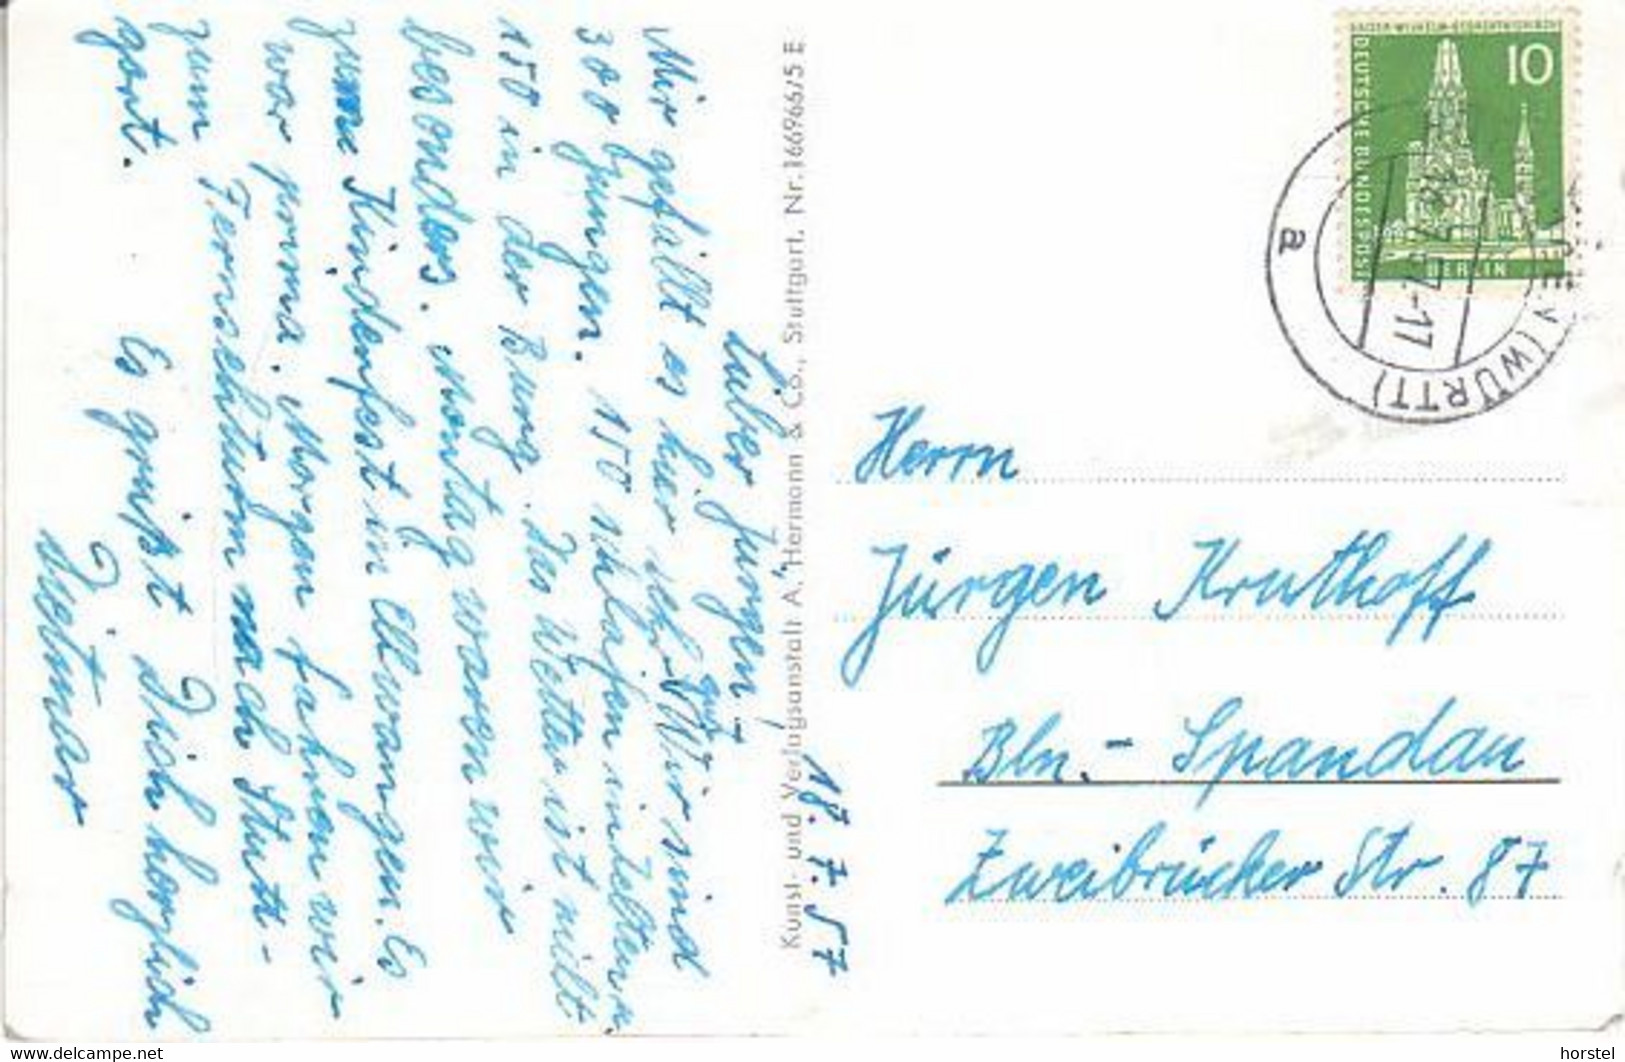 18. 7. 57
Lieber Jürgen!
Mir gefällt es hier sehr gut. Wir sind
300 Jungen. 150 schlafen in Zelten u.
150 in der Burg. Das Wetter ist nicht
besonders. Montag waren wir
zum Kinderfest in Ellwangen. Es
war prima. Morgen fahren wir
zum Fernsehturm nach Stutt-
gart. Es grüßt Dich herzlich
Dietmar
Kunst- und Verlagsanstalt A. Hermann & Co., Stuttgart. Nr. 166966/5 E
KAISER-WILHELM-GEDÄCHTNISKIRCHE
10
DEUTSCHE BUNDESPOST
BERLIN
(WÜRTT)
a
Herrn
Jürgen Kruthoff
Bln.- Spandau
Zweibrücker Str. 87
www.delcampe.net
horstel